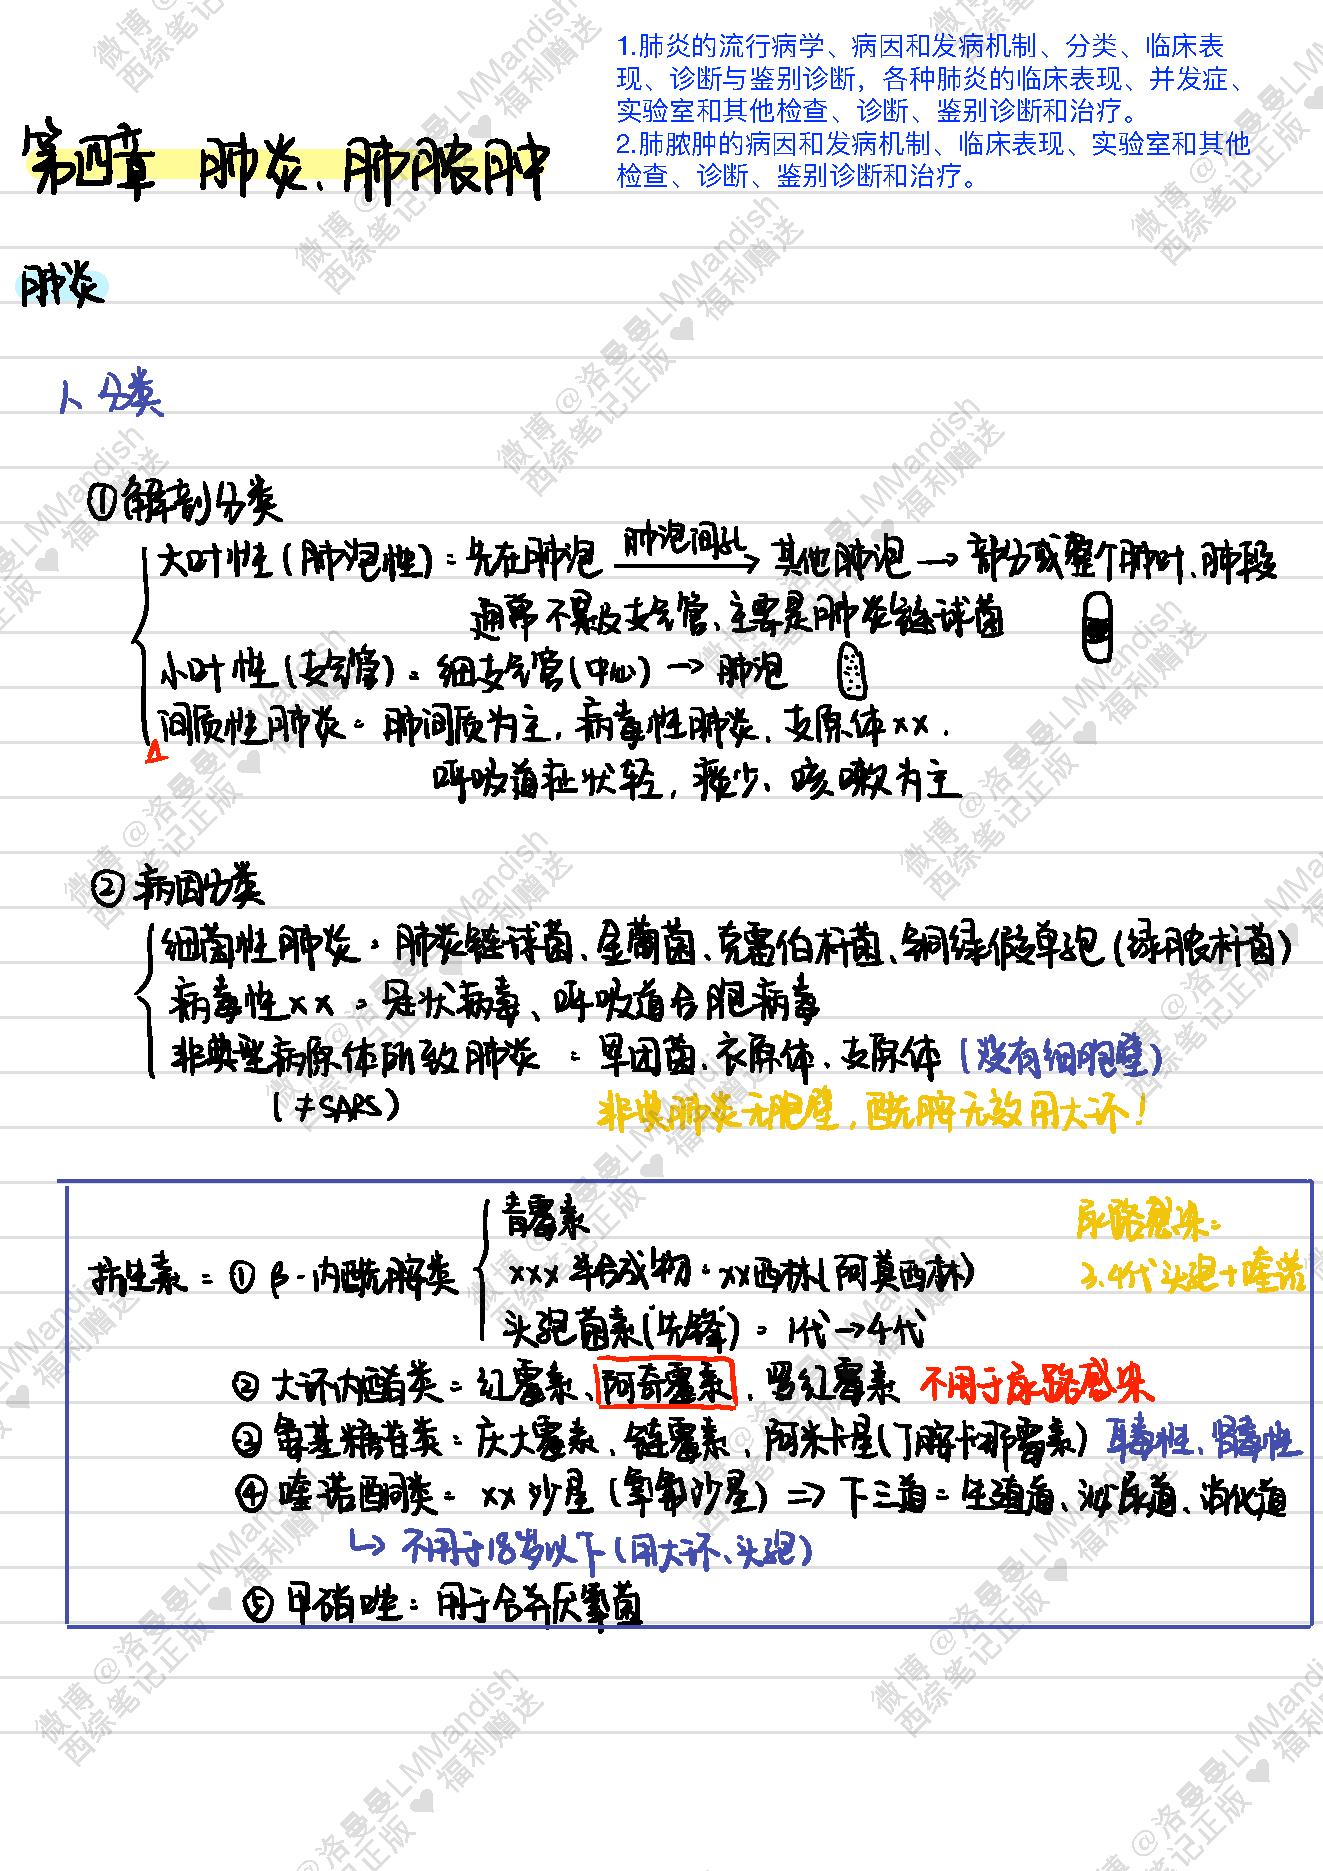 1.肺炎的流行病学、病因和发病机制、分类、临床表
现、诊断与鉴别诊断，各种肺炎的临床表现、并发症、
实验室和其他检查、诊断、鉴别诊断和治疗。
2.肺脓肿的病因和发病机制、临床表现、实验室和其他
检查、诊断、鉴别诊断和治疗。
第四章 肺炎、肺脓肿
肺炎
1、分类
①解剖分类
大叶性(肺泡性)：先在肺泡 肺泡间孔→ 其他肺泡→部分或整个肺叶、肺段
通常不累及支气管、主要是肺炎链球菌
小叶性(支气管)：细支气管(中心)→肺泡
间质性肺炎：肺间质为主，病毒性肺炎、支原体xx.
呼吸道症状轻，痰少、咳嗽为主
②病因分类
细菌性肺炎：肺炎链球菌、金葡菌、克雷伯杆菌、铜绿假单孢(绿脓杆菌)
病毒性xx：冠状病毒、呼吸道合胞病毒
非典型病原体所致肺炎：军团菌、衣原体、支原体(没有细胞壁)
(≠SARS)
非典肺炎无胞壁，酰胺无效用大环!
青霉素
尿路感染：
抗生素：①β-内酰胺类 xxx半合成物：xx西林(阿莫西林)
3.4代头孢+喹诺
头孢菌素("先锋")：1代→4代
②大环内酯类：红霉素、阿奇霉素、罗红霉素 不用于尿路感染
③氨基糖苷类：庆大霉素、链霉素、阿米卡星(丁胺卡那霉素) 耳毒性、肾毒性
④喹诺酮类：xx沙星(氧氟沙星)=>下三道：生殖道、泌尿道、消化道
↳不用于18岁以下(用大环、头孢)
⑤甲硝唑：用于合并厌氧菌
微博@洛曼曼LMMandish
西综笔记正版♥福利赠送